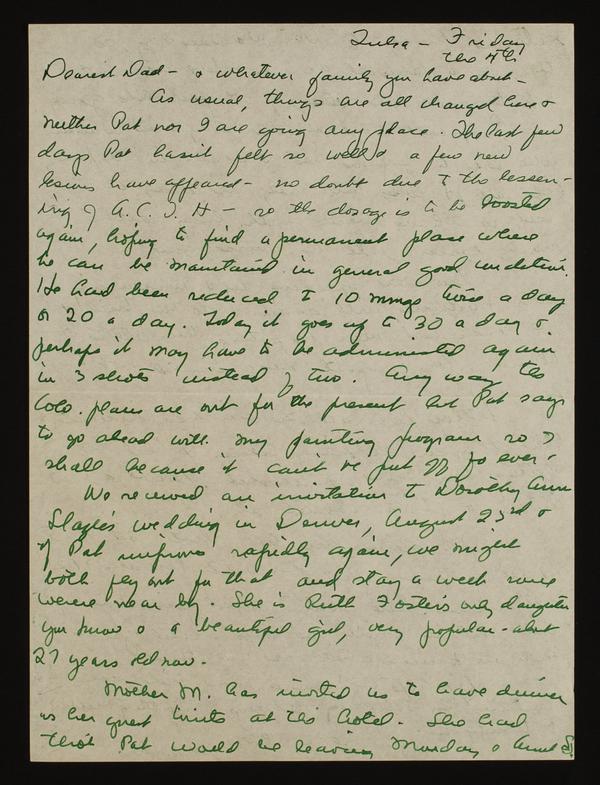 Tulsa - Friday
the 4th
Dearest Dad - & whatever family you have about -
As usual, things are all changed here &
neither Pat nor I are going any place. The last few
days Pat hasn't felt so well & a few new
lesions have appeared - no doubt due to the lessen-
ing of A.C.T.H - so the dosage is to be boosted
again, hoping to find a permanent place where
he can be maintained in general good condition.
He had been reduced to 10 mmgs twice a day
or 20 a day. Today it goes up to 30 a day &
perhaps it may have to be administered again
in 3 shots instead of two. Any way the
Colo. plans are out for the present but Pat says
to go ahead with my painting program so I
shall because it can't be put off for ever.
We received an invitation to Dorothy Ann
Slagle's wedding in Denver, August 23rd &
if Pat improves rapidly again, we might
both fly out for that and stay a week some
where near by. She is Ruth Foster's only daughter
you know & a beautiful girl, very popular - about
27 years old now.
Mother M. has invited us to have dinner
as her guest at the hotel. She had
tho't Pat would be leaving Monday & Aunt